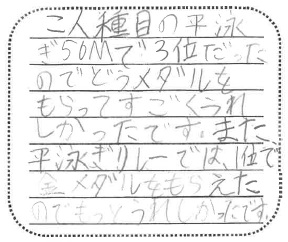 二人種目の平泳
ぎ50Mで3位だった
のでどうメダルを
もらってすごくうれ
しかったです。また
平泳ぎリレーでは、1位で
金メダルをもらえた
のでもっとうれしかったです。